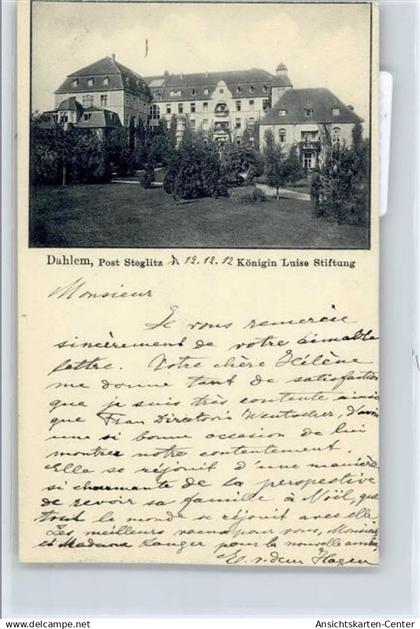 Dahlem, Post Steglitz 12.12.12 Königin Luise Stiftung
Monsieur
Je vous remercie
sincèrement de votre aimable
lettre. Votre chère Hélène
me donne tant de satisfaction
que je suis très contente ainsi
que Frau Directorin d'avoir
une si bonne occasion de lui
montrer notre contentement.
Elle se réjouit d'une manière
si charmante de la perspective
de revoir sa famille à Noël, que
tout le monde se réjouit avec elle
Les meilleurs vœux pour vous, Monsieur
et Madame Langer pour la nouvelle année,
E. v. dem Hagen
Ansichtskarten-Center.com